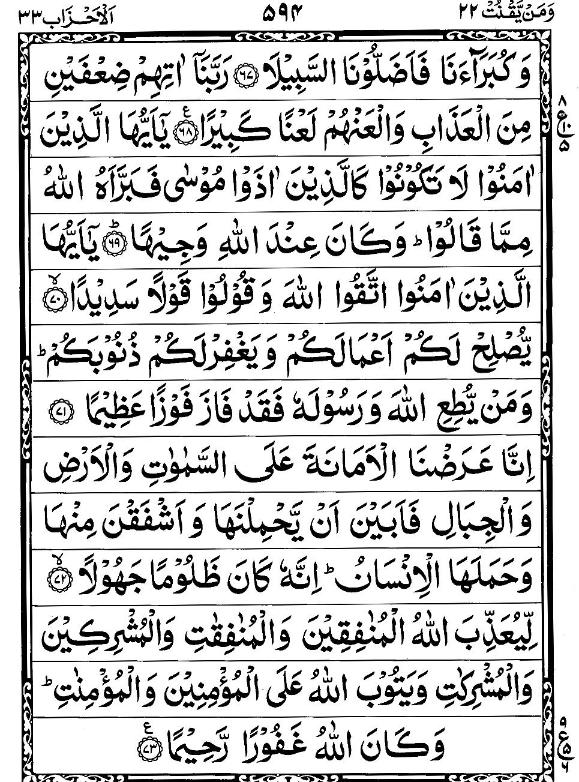 وَمَنْ يَّقْنُتْ ٢٢ ۵۹۴ اَلْاَحْزَاب ٣٣
وَكُبَرَآءَنَا فَاَضَلُّوْنَا السَّبِيْلَا ﴿۶۷﴾ رَبَّنَاۤ اٰتِهِمْ ضِعْفَيْنِ
مِنَ الْعَذَابِ وَالْعَنْهُمْ لَعْنًا كَبِيْرًا ﴿۶۸﴾ ع يٰۤاَيُّهَا الَّذِيْنَ
اٰمَنُوْا لَا تَكُوْنُوْا كَالَّذِيْنَ اٰذَوْا مُوْسٰى فَبَرَّاَهُ اللّٰهُ
مِمَّا قَالُوْا ؕ وَكَانَ عِنْدَ اللّٰهِ وَجِيْهًا ﴿۶۹﴾ ؕ يٰۤاَيُّهَا
الَّذِيْنَ اٰمَنُوا اتَّقُوا اللّٰهَ وَقُوْلُوْا قَوْلًا سَدِيْدًا ﴿۷۰﴾ ۙ
يُّصْلِحْ لَكُمْ اَعْمَالَكُمْ وَيَغْفِرْ لَكُمْ ذُنُوْبَكُمْ ؕ
وَمَنْ يُّطِعِ اللّٰهَ وَرَسُوْلَهٗ فَقَدْ فَازَ فَوْزًا عَظِيْمًا ﴿۷۱﴾
اِنَّا عَرَضْنَا الْاَمَانَةَ عَلَى السَّمٰوٰتِ وَالْاَرْضِ
وَالْجِبَالِ فَاَبَيْنَ اَنْ يَّحْمِلْنَهَا وَاَشْفَقْنَ مِنْهَا
وَحَمَلَهَا الْاِنْسَانُ ؕ اِنَّهٗ كَانَ ظَلُوْمًا جَهُوْلًا ﴿۷۲﴾ ۙ
لِّيُعَذِّبَ اللّٰهُ الْمُنٰفِقِيْنَ وَالْمُنٰفِقٰتِ وَالْمُشْرِكِيْنَ
وَالْمُشْرِكٰتِ وَيَتُوْبَ اللّٰهُ عَلَى الْمُؤْمِنِيْنَ وَالْمُؤْمِنٰتِ ؕ
وَكَانَ اللّٰهُ غَفُوْرًا رَّحِيْمًا ﴿۷۳﴾ ع
۸
ع ۱۰
۵
۹
ع ۵
۶